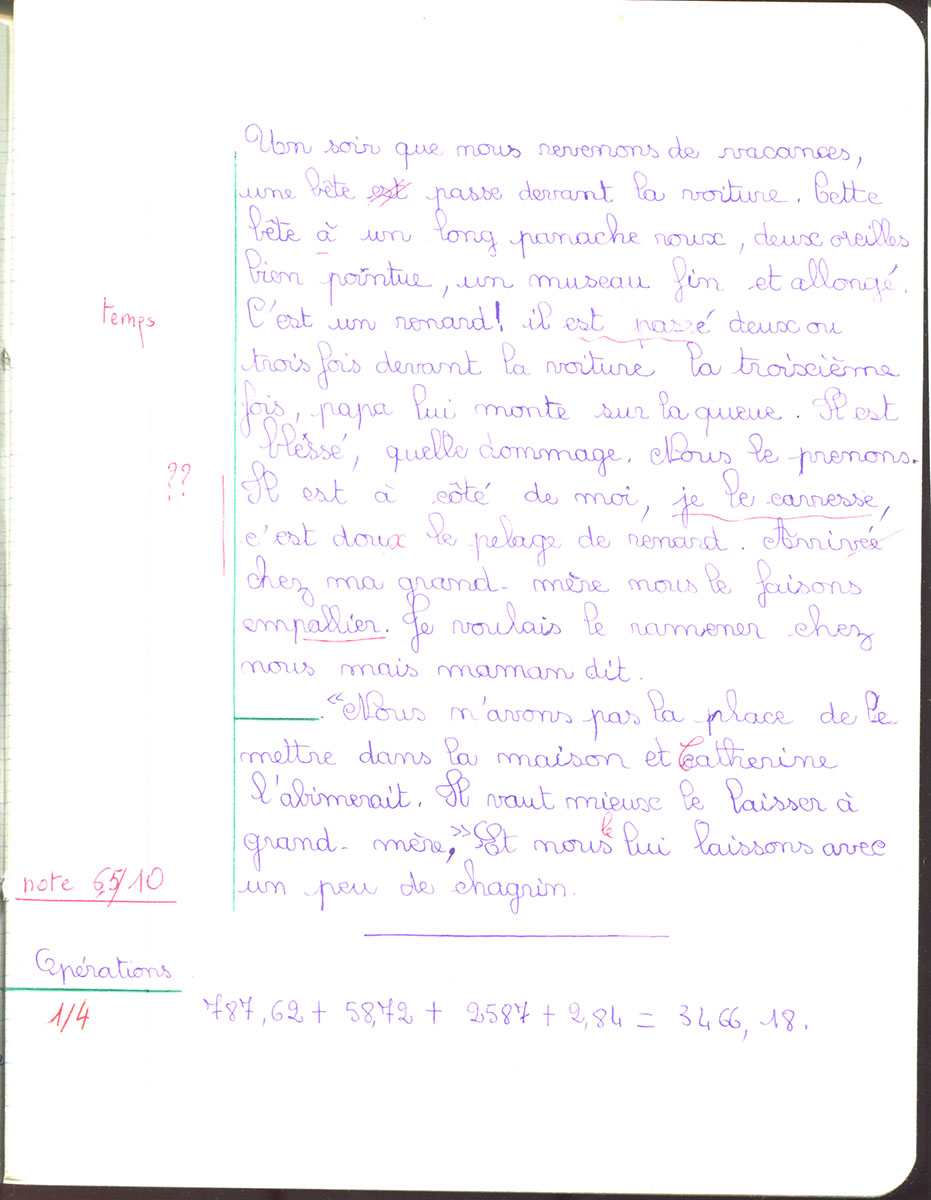 Un soir que nous revenons de vacances,
une bête est passe devant la voiture. Cette
bête à un long panache roux, deux oreilles
bien pointue, un museau fin et allongé.
temps
C'est un renard! il est passé deux ou
trois fois devant la voiture la troixcième
fois, papa lui monte sur la queue. Il est
bléssé, quelle dommage. Nous le prenons.
??
Il est à côté de moi, je le carresse,
c'est doux le pelage de renard. Arrivée
chez ma grand-mère nous le faisons
empallier. Je voulais le ramener chez
nous mais maman dit.
"Nous n'avons pas la place de le
mettre dans la maison et Catherine
l'abimerait. Il vaut mieux le laisser à
grand-mère." Et nous le lui laissons avec
note 6,5/10
un peu de chagrin.
Opérations
1/4
787,62 + 58,72 + 2587 + 2,84 = 3466,18.